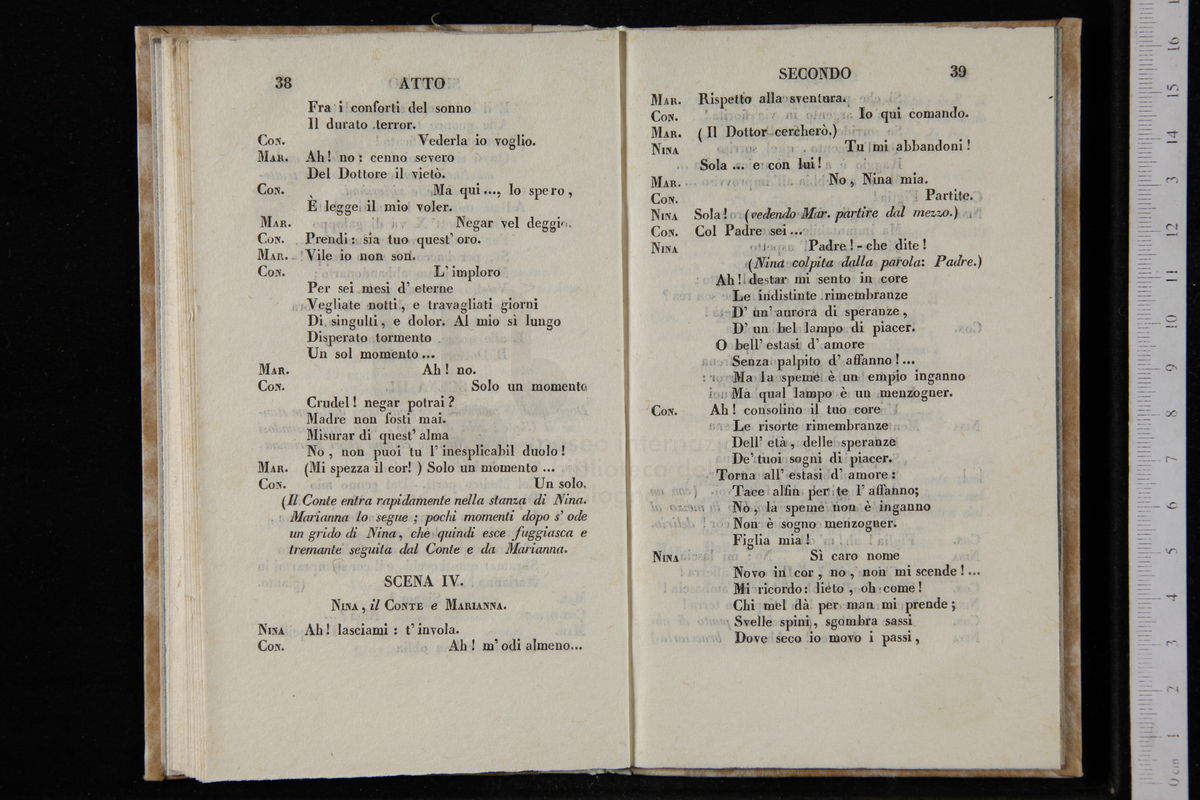 38 ATTO
Fra i conforti del sonno
Il durato terror.
CON. Vederla io voglio.
MAR. Ah! no: cenno severo
Del Dottore il vietò.
CON. Ma qui..., lo spero,
È legge il mio voler.
MAR. Negar vel deggio.
CON. Prendi: sia tuo quest' oro.
MAR. Vile io non son.
CON. L' imploro
Per sei mesi d' eterne
Vegliate notti, e travagliati giorni
Di singulti, e dolor. Al mio sì lungo
Disperato tormento
Un sol momento...
MAR. Ah! no.
CON. Solo un momento
Crudel! negar potrai?
Madre non fosti mai.
Misurar di quest' alma
No, non puoi tu l' inesplicabil duolo!
MAR. (Mi spezza il cor!) Solo un momento ...
CON. Un solo.
(Il Conte entra rapidamente nella stanza di Nina.
Marianna lo segue; pochi momenti dopo s' ode
un grido di Nina, che quindi esce fuggiasca e
tremante seguita dal Conte e da Marianna.
SCENA IV.
NINA, il CONTE e MARIANNA.
NINA Ah! lasciami: t' invola.
CON. Ah! m' odi almeno...
SECONDO 39
MAR. Rispetto alla sventura.
CON. Io qui comando.
MAR. (Il Dottor cercherò.)
NINA Tu mi abbandoni!
Sola ... e con lui!
MAR. No, Nina mia.
CON. Partite.
NINA Sola! (vedendo Mar. partire dal mezzo.)
CON. Col Padre sei...
NINA Padre! - che dite!
(Nina colpita dalla parola: Padre.)
Ah! destar mi sento in core
Le indistinte rimembranze
D' un' aurora di speranze,
D' un bel lampo di piacer.
O bell' estasi d' amore
Senza palpito d' affanno!...
Ma la speme è un empio inganno
Ma qual lampo è un menzogner.
CON. Ah! consolino il tuo core
Le risorte rimembranze
Dell' età, delle speranze
De' tuoi sogni di piacer.
Torna all' estasi d' amore:
Tace alfin per te l' affanno;
No, la speme non è inganno
Non è sogno menzogner.
Figlia mia!
NINA Sì caro nome
Novo in cor, no, non mi scende!...
Mi ricordo: lieto, oh come!
Chi mel dà per man mi prende;
Svelle spini, sgombra sassi
Dove seco io movo i passi,